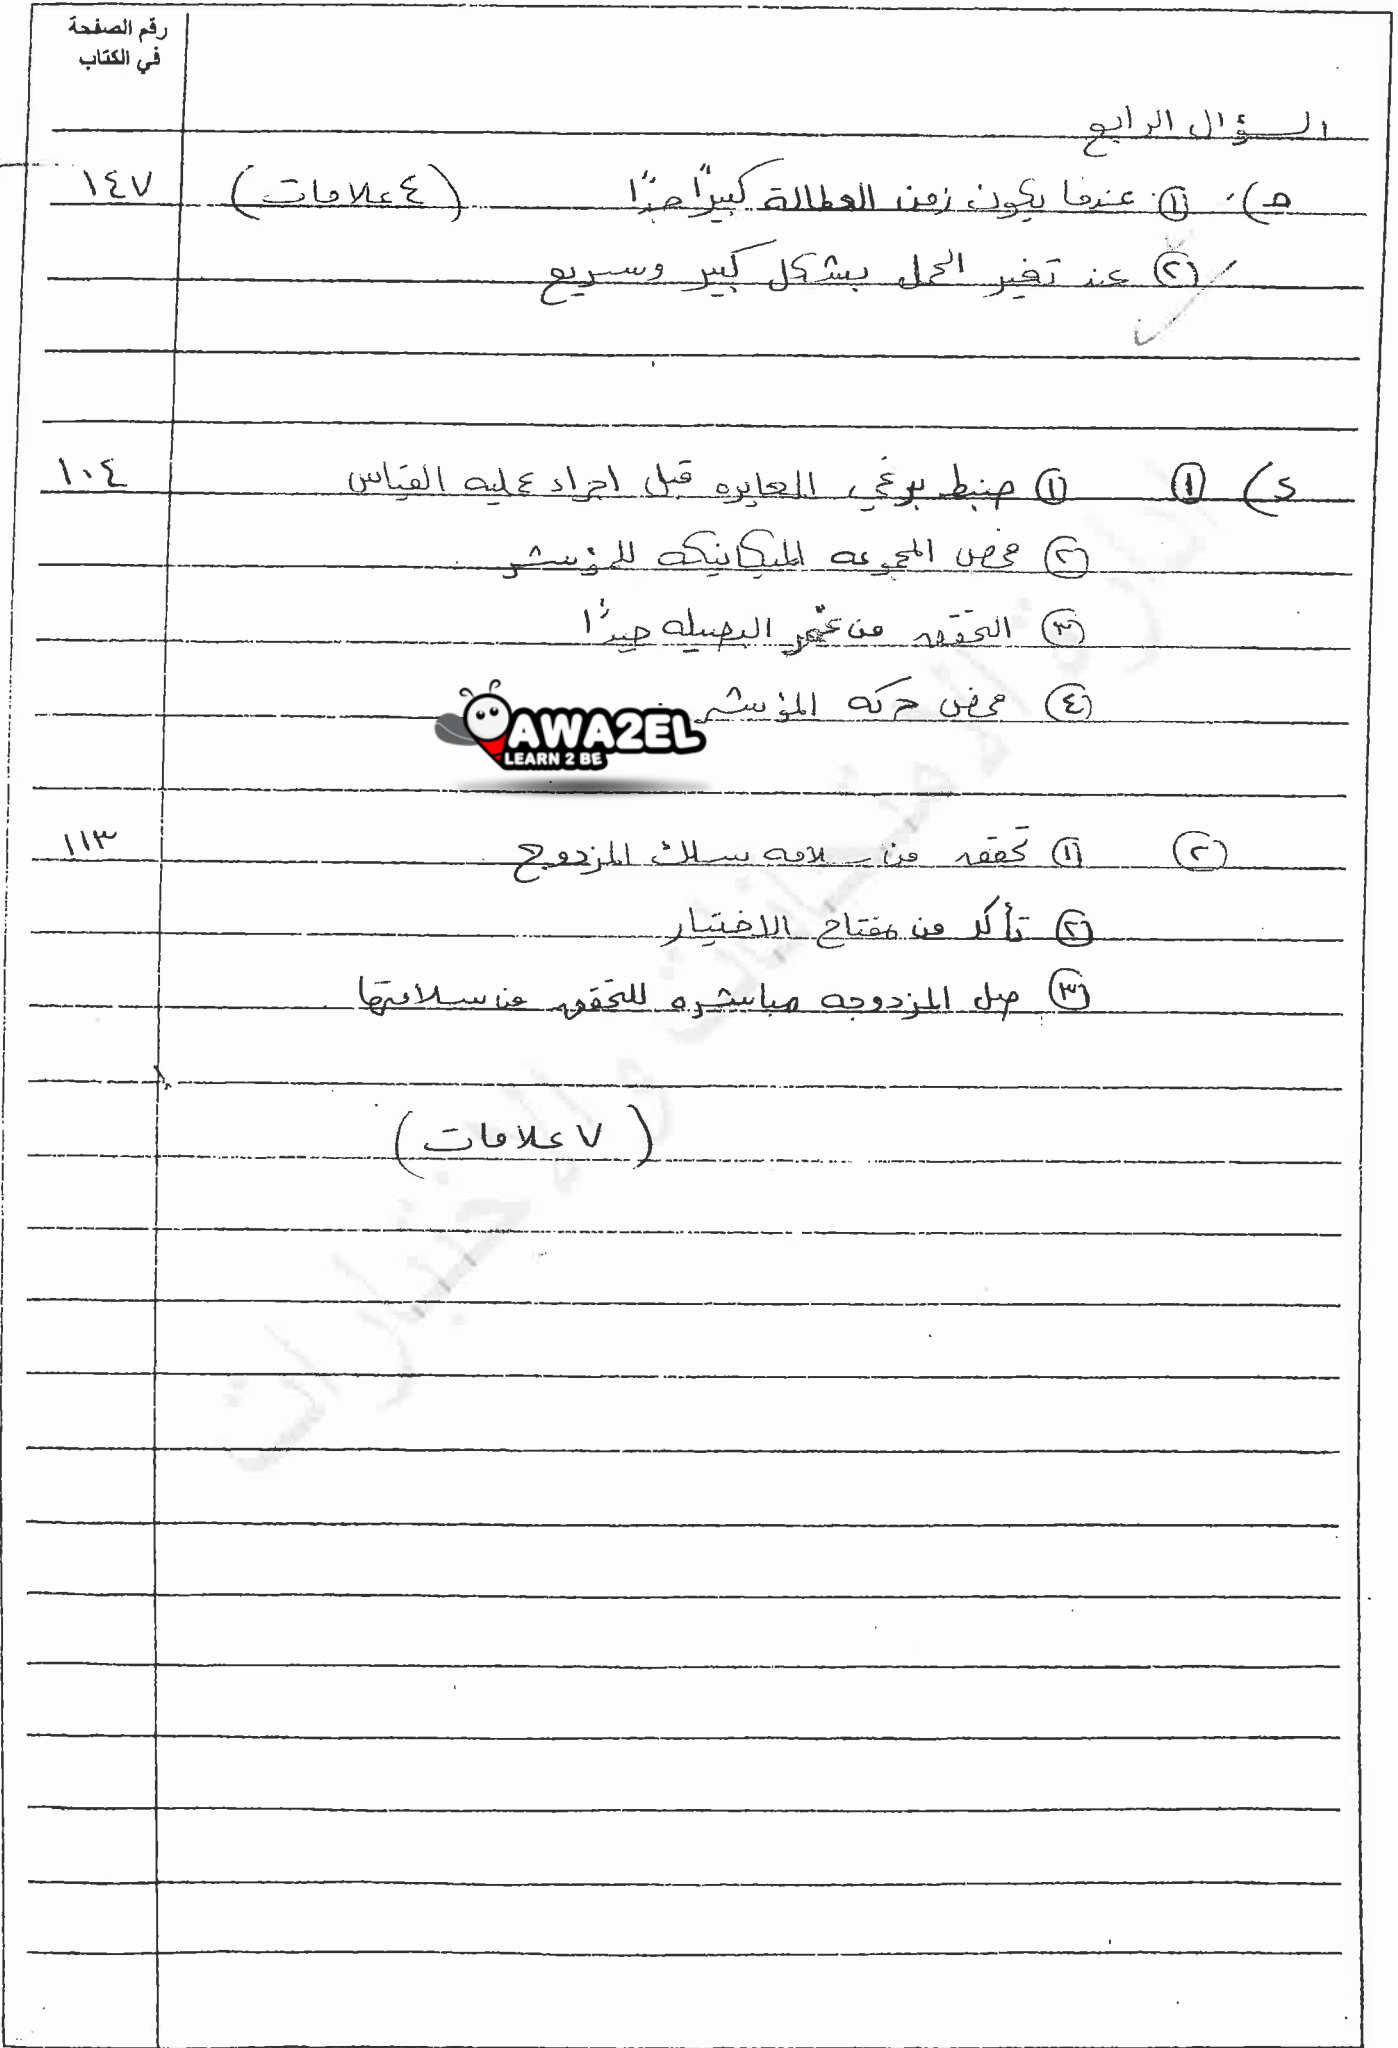 رقم الصفحة
في الكتاب
السؤال الرابع
هـ) ① عندما يكون زمن العطالة كبيرًا جدًا (٤ علامات) ١٤٧
② عند تغير الحمل بشكل كبير وسريع
د) ① ① ضبط برغي المعايره قبل اجراء عمليه القياس ١٠٤
② فحص المجموعه الميكانيكه للمؤشر
③ التحقق من غمر البصيله جيدًا
④ فحص حركه المؤشر
AWA2EL
LEARN 2 BE
② ① تحقق من سلامه سلك المزدوج ١١٣
② تأكد من مفتاح الاختيار
③ صل المزدوجه مباشره للتحقق من سلامتها
(٧ علامات)
إدارة الامتحانات والاختبارات